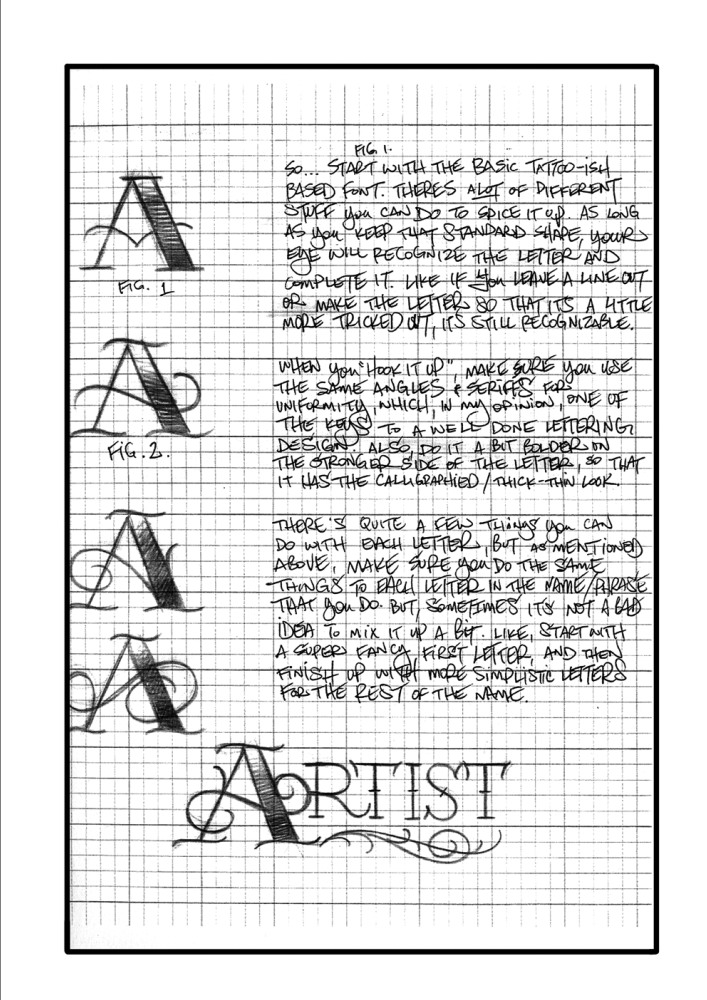 FIG. 1.
SO... START WITH THE BASIC TATTOO-ISH
BASED FONT. THERES A LOT OF DIFFERENT
STUFF you CAN DO TO SPICE IT UP. AS LONG
AS you KEEP THAT STANDARD SHAPE, YOUR
EYE WILL RECOGNIZE THE LETTER AND
COMPLETE IT. LIKE IF you LEAVE A LINE OUT
OR MAKE THE LETTER SO THAT IT'S A LITTLE
MORE TRICKED OUT, IT'S STILL RECOGNIZABLE.
FIG. 1
WHEN you "HOOK IT UP", MAKE SURE you USE
THE SAME ANGLES & SERIFFS FOR
UNIFORMITY, WHICH, IN MY OPINION, ONE OF
THE KEYS TO A WELL DONE LETTERING
DESIGN. ALSO, DO IT A BIT BOLDER ON
THE STRONGER SIDE OF THE LETTER, SO THAT
IT HAS THE CALLIGRAPHIED / THICK-THIN LOOK.
FIG. 2.
THERE'S QUITE A FEW THINGS you CAN
DO WITH EACH LETTER, BUT AS MENTIONED
ABOVE, MAKE SURE you DO THE SAME
THINGS TO EACH LETTER IN THE NAME/PHRASE
THAT you DO. BUT, SOMETIMES IT'S NOT A BAD
IDEA TO MIX IT UP A BIT. LIKE, START WITH
A SUPER FANCY FIRST LETTER, AND THEN
FINISH UP WITH MORE SIMPLISTIC LETTERS
FOR THE REST OF THE NAME.
A
A
A
A
ARTIST